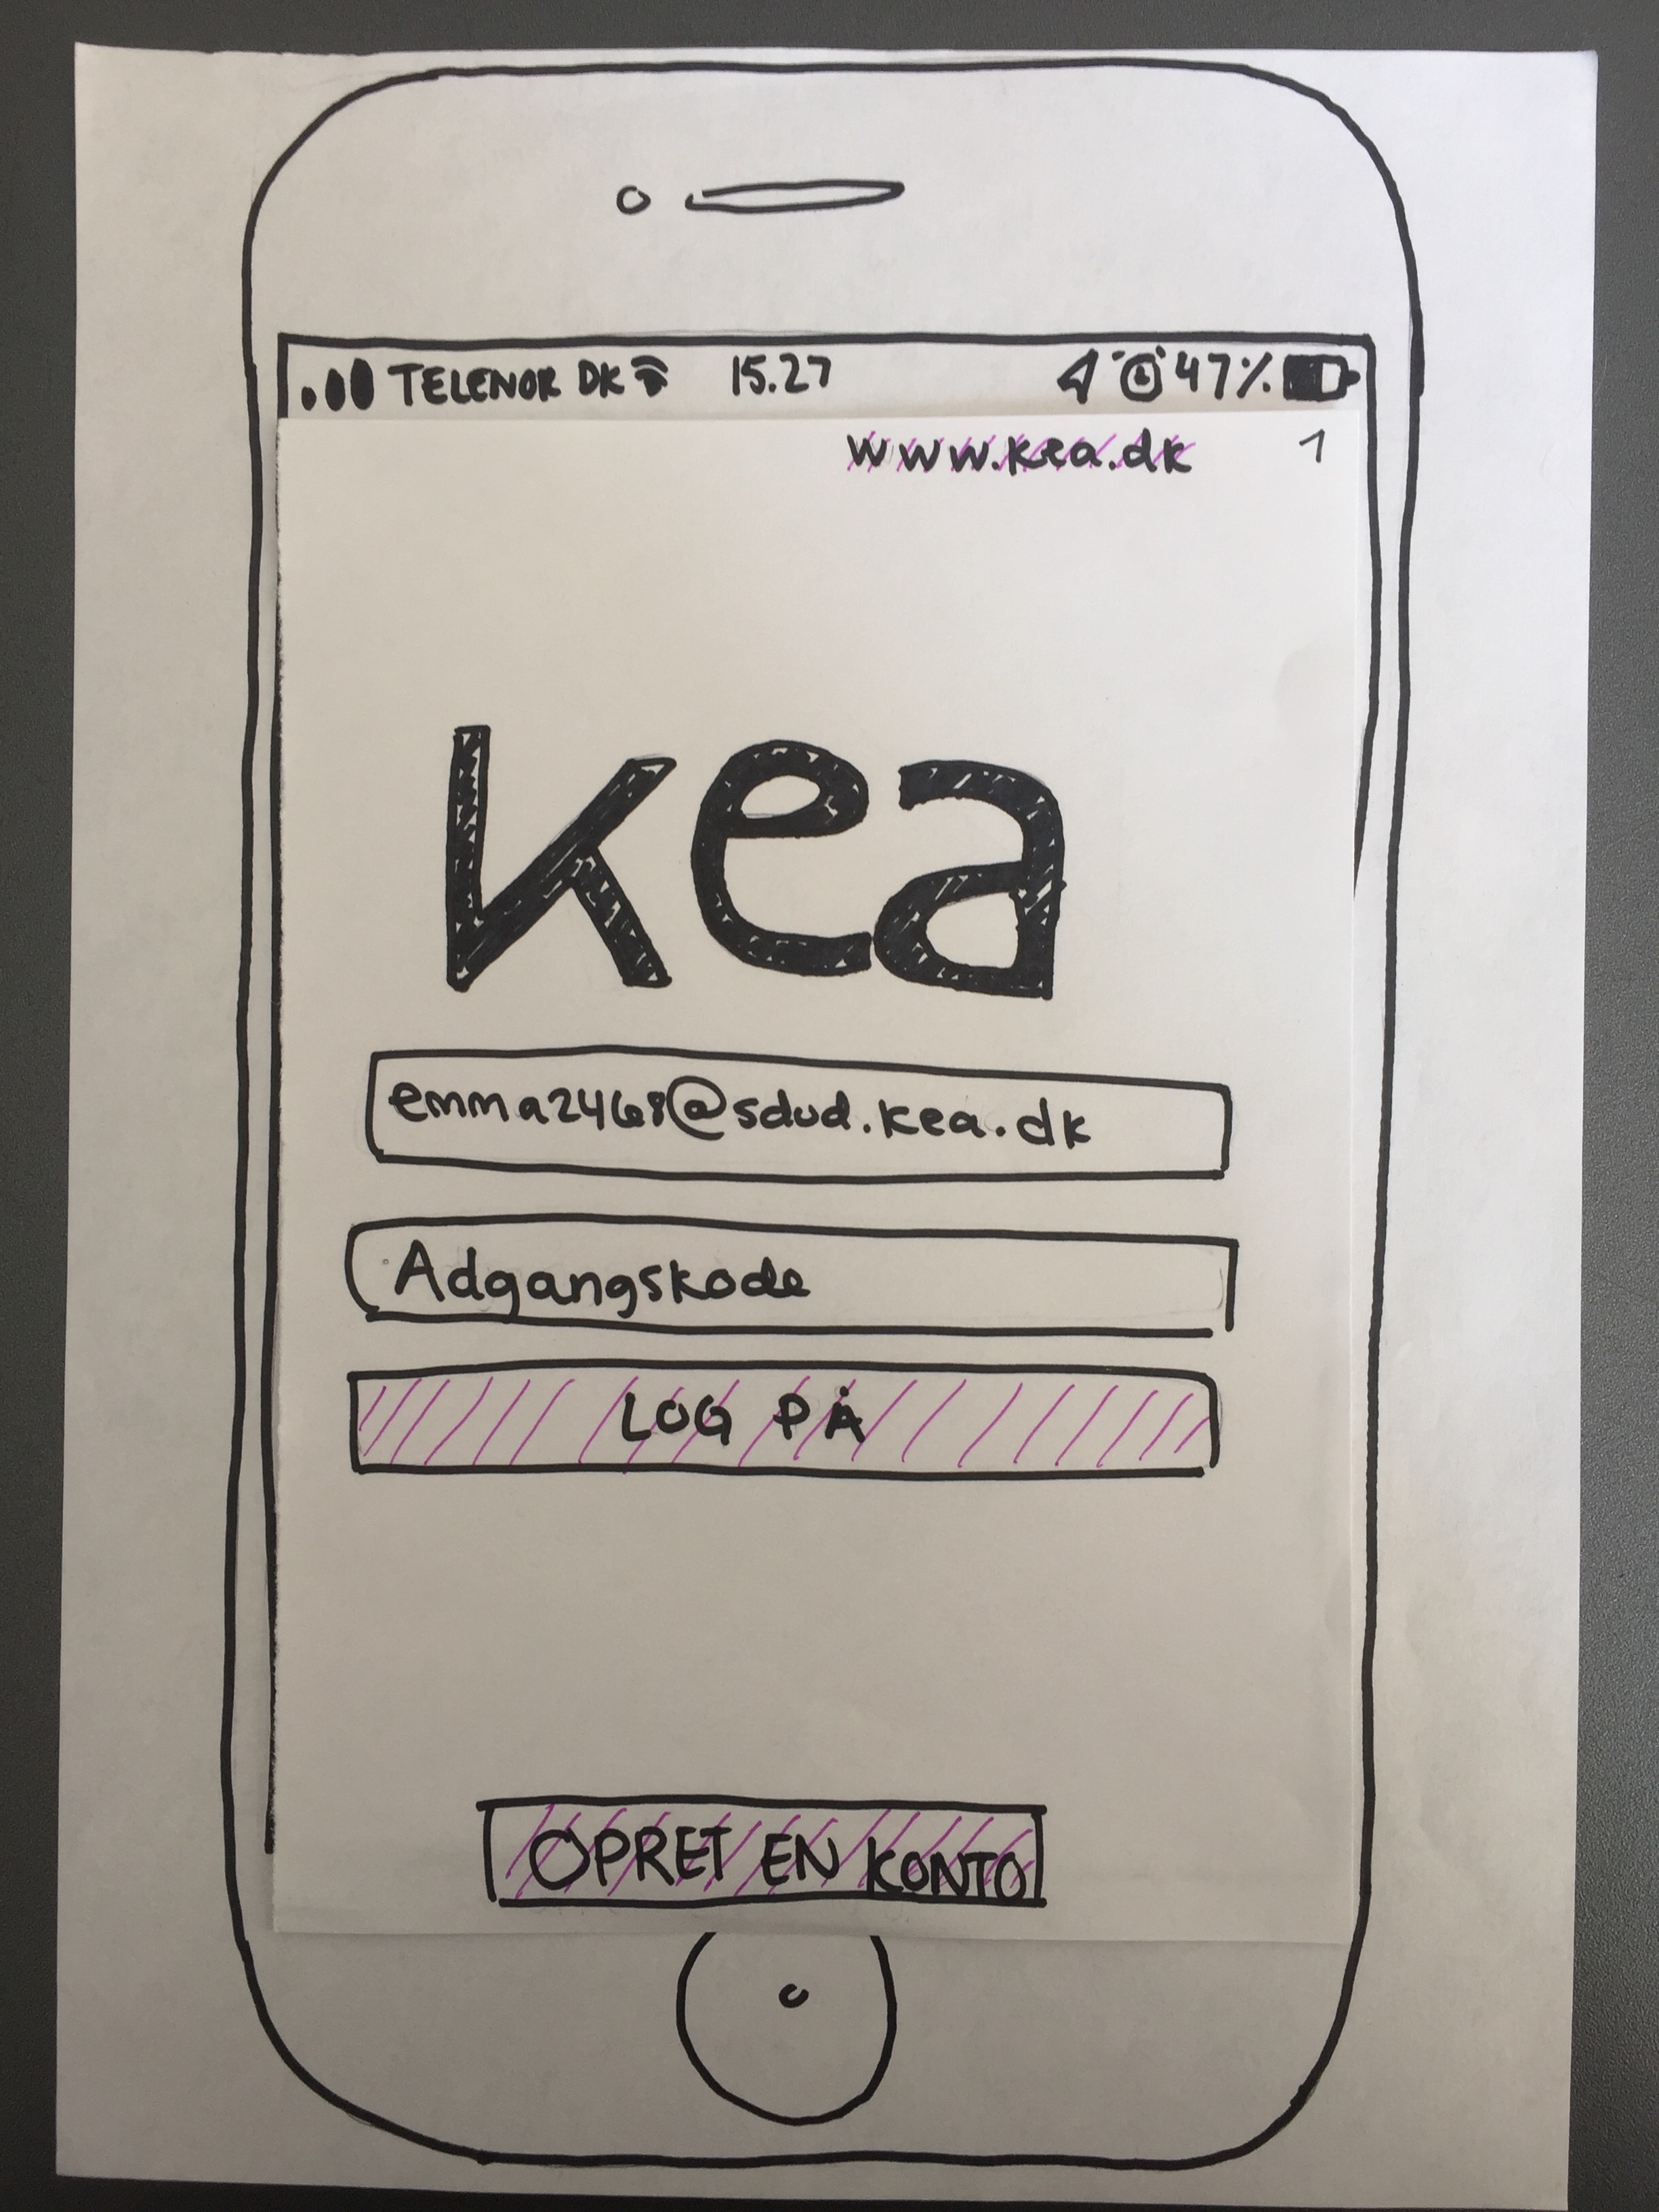 TELENOR DK 15.27 47%
www.kea.dk 1
kea
emma2468@sdud.kea.dk
Adgangskode
LOG PÅ
OPRET EN KONTO